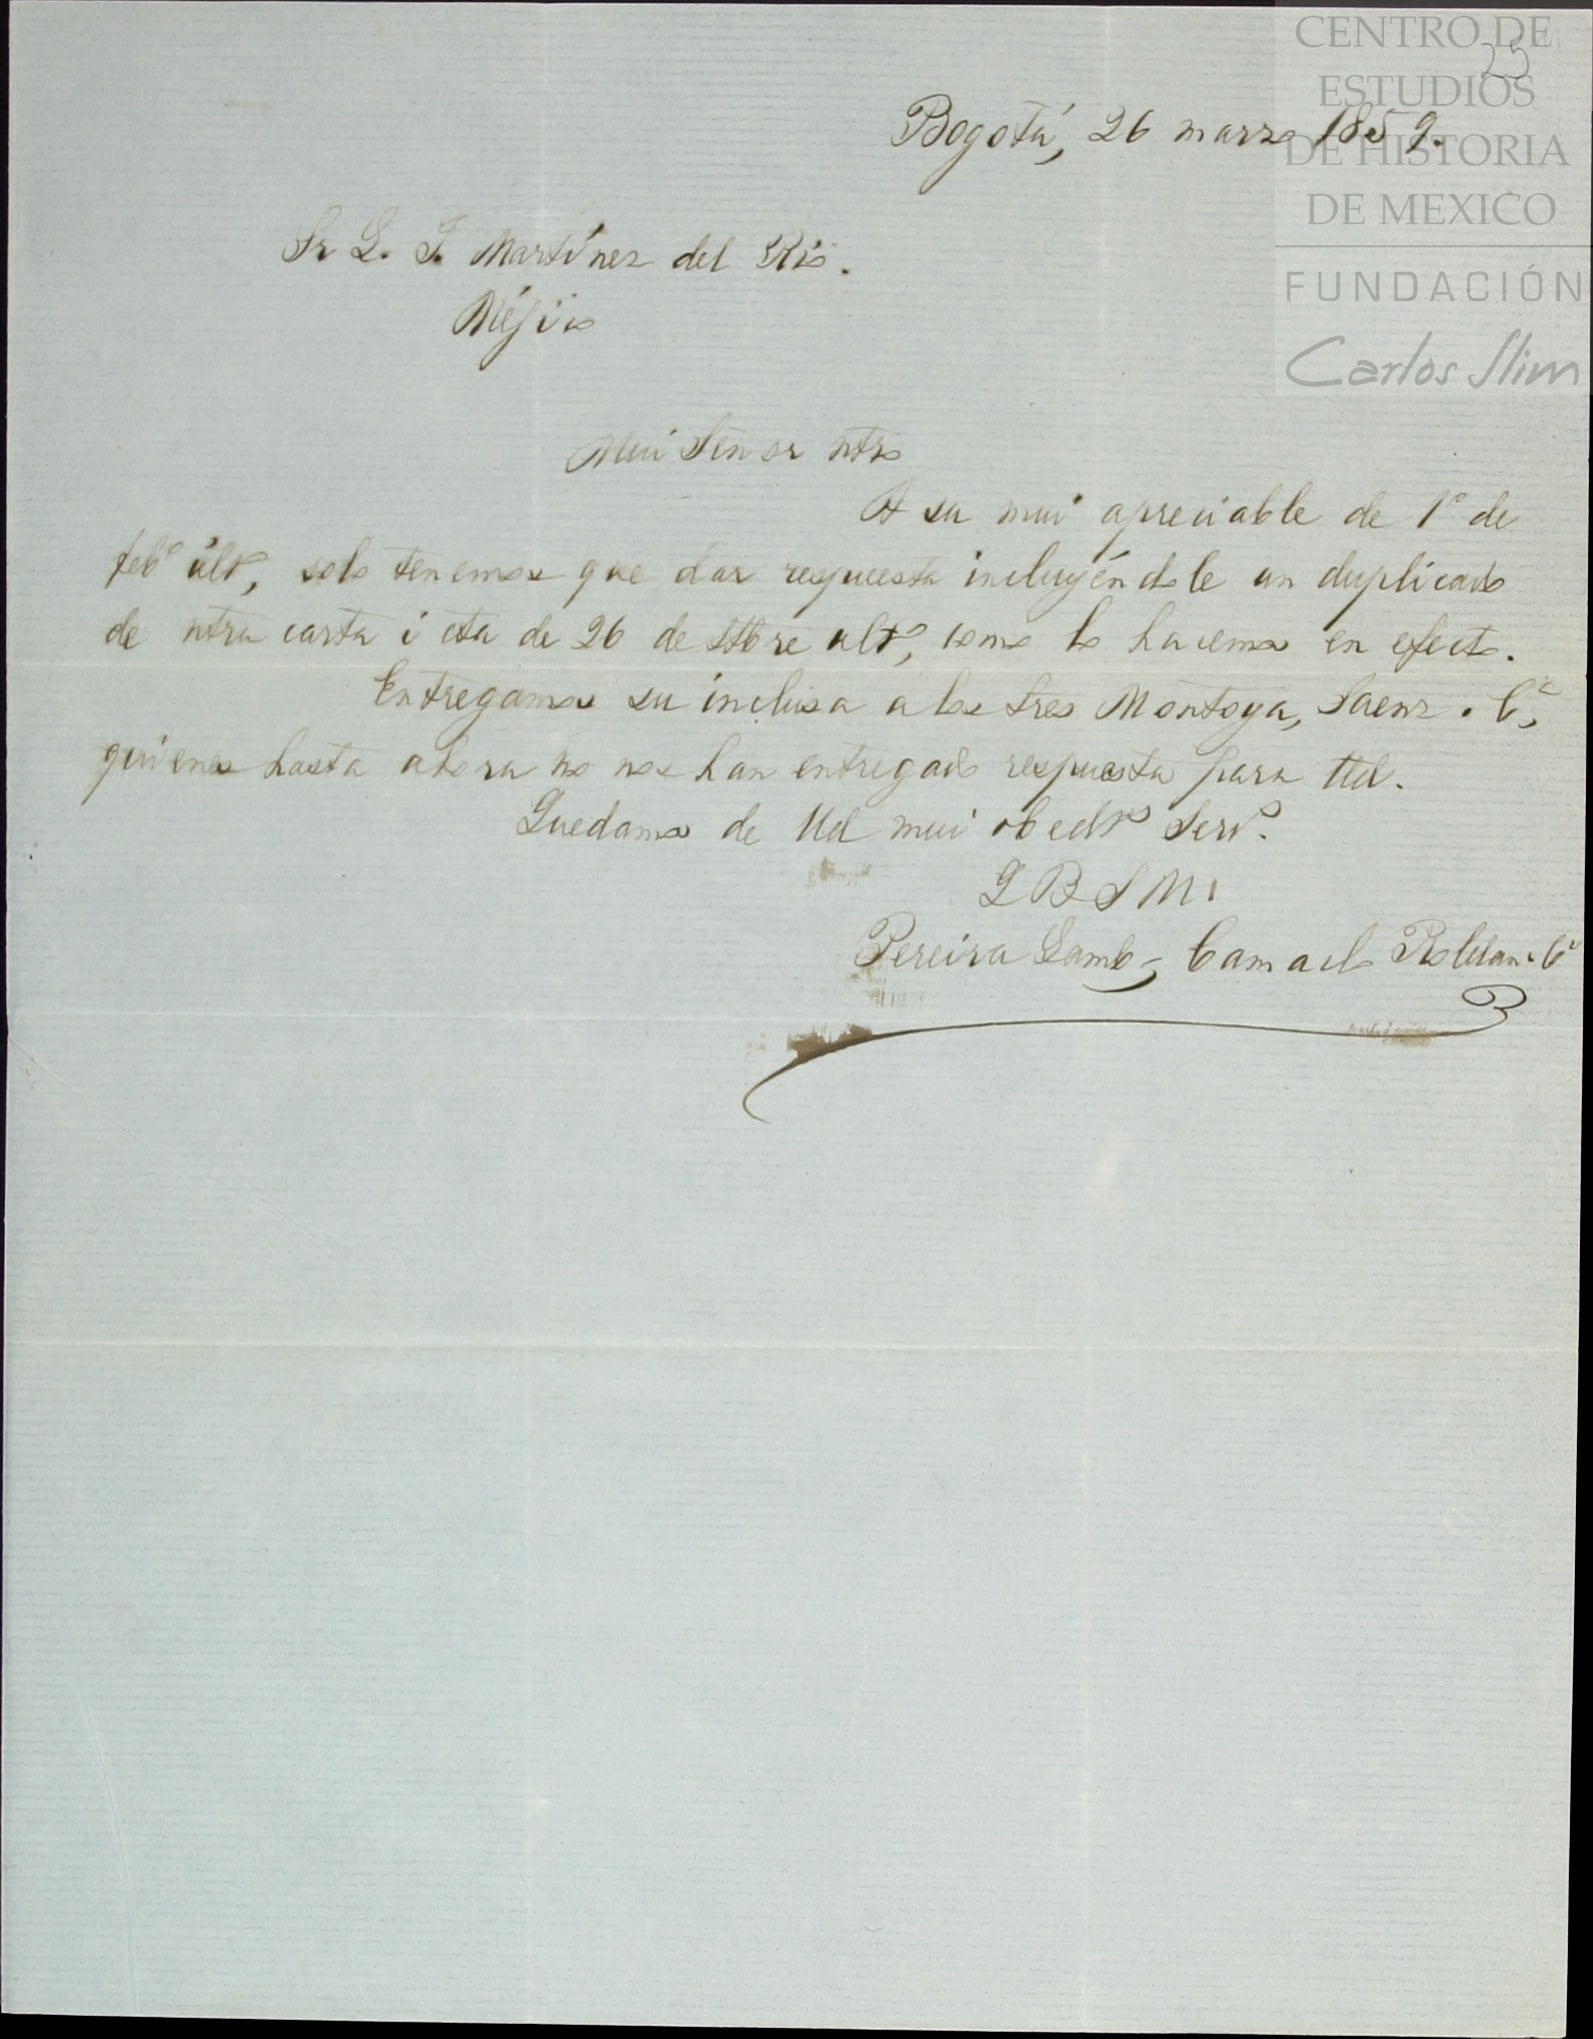 CENTRO DE
ESTUDIOS
DE HISTORIA
DE MEXICO
FUNDACIÓN
Carlos Slim
25
Bogotá, 26 marzo 1859.
Sr L. J. Martínez del Rio.
Méjico
Mui Señor ntro
A su mui apreciable de 1º de
febº últº, solo tenemos que dar respuesta incluyéndole un duplicado
de ntra carta i cta de 26 de ultº, como lo hacemos en efecto.
Entregamos su inclusa a los Sres Montoya, Saenz i Cª,
quienes hasta ahora no nos han entregado respuesta para Ud.
Quedamos de Ud mui obedtº Servº.
Q B S M.
Pereira Gamb, Camacho Roldan i Cª